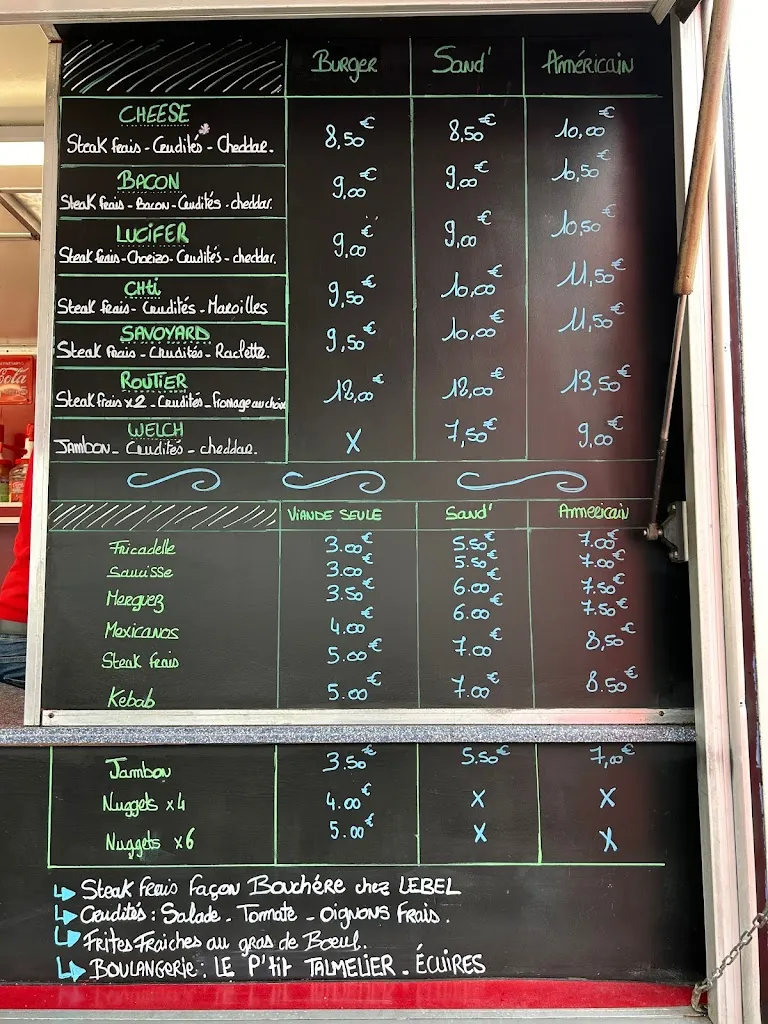 Burger Sand' Américain
CHEESE
Steak frais - Crudités - Cheddar. 8,50€ 8,50€ 10,00€
BACON
Steak frais - Bacon - Crudités - cheddar. 9,00€ 9,00€ 10,50€
LUCIFER
Steak frais - Chorizo - Crudités - cheddar. 9,00€ 9,00€ 10,50€
CHti
Steak frais - Crudités - Maroilles 9,50€ 10,00€ 11,50€
SAVOYARD
Steak frais - Crudités - Raclette. 9,50€ 10,00€ 11,50€
ROUTIER
Steak frais x2 - Crudités - fromage au choix 12,00€ 12,00€ 13,50€
WELCH
Jambon - Crudités - cheddar. X 7,50€ 9,00€
VIANDE SEULE Sand' Américain
Fricadelle 3.00€ 5.50€ 7.00€
Saucisse 3.00€ 5.50€ 7.00€
Merguez 3.50€ 6.00€ 7.50€
Mexicanos 4.00€ 6.00€ 7.50€
Steak frais 5.00€ 7.00€ 8,50€
Kebab 5.00€ 7.00€ 8.50€
Jambon 3.50€ 5.50€ 7,00€
Nuggets x4 4.00€ X X
Nuggets x6 5.00€ X X
Steak frais façon Bouchère chez LEBEL
Crudités : Salade - Tomate - oignons frais.
Frites Fraiches au gras de Boeuf.
BOULANGERIE : LE P'tit TALMELIER - ÉCUIRES